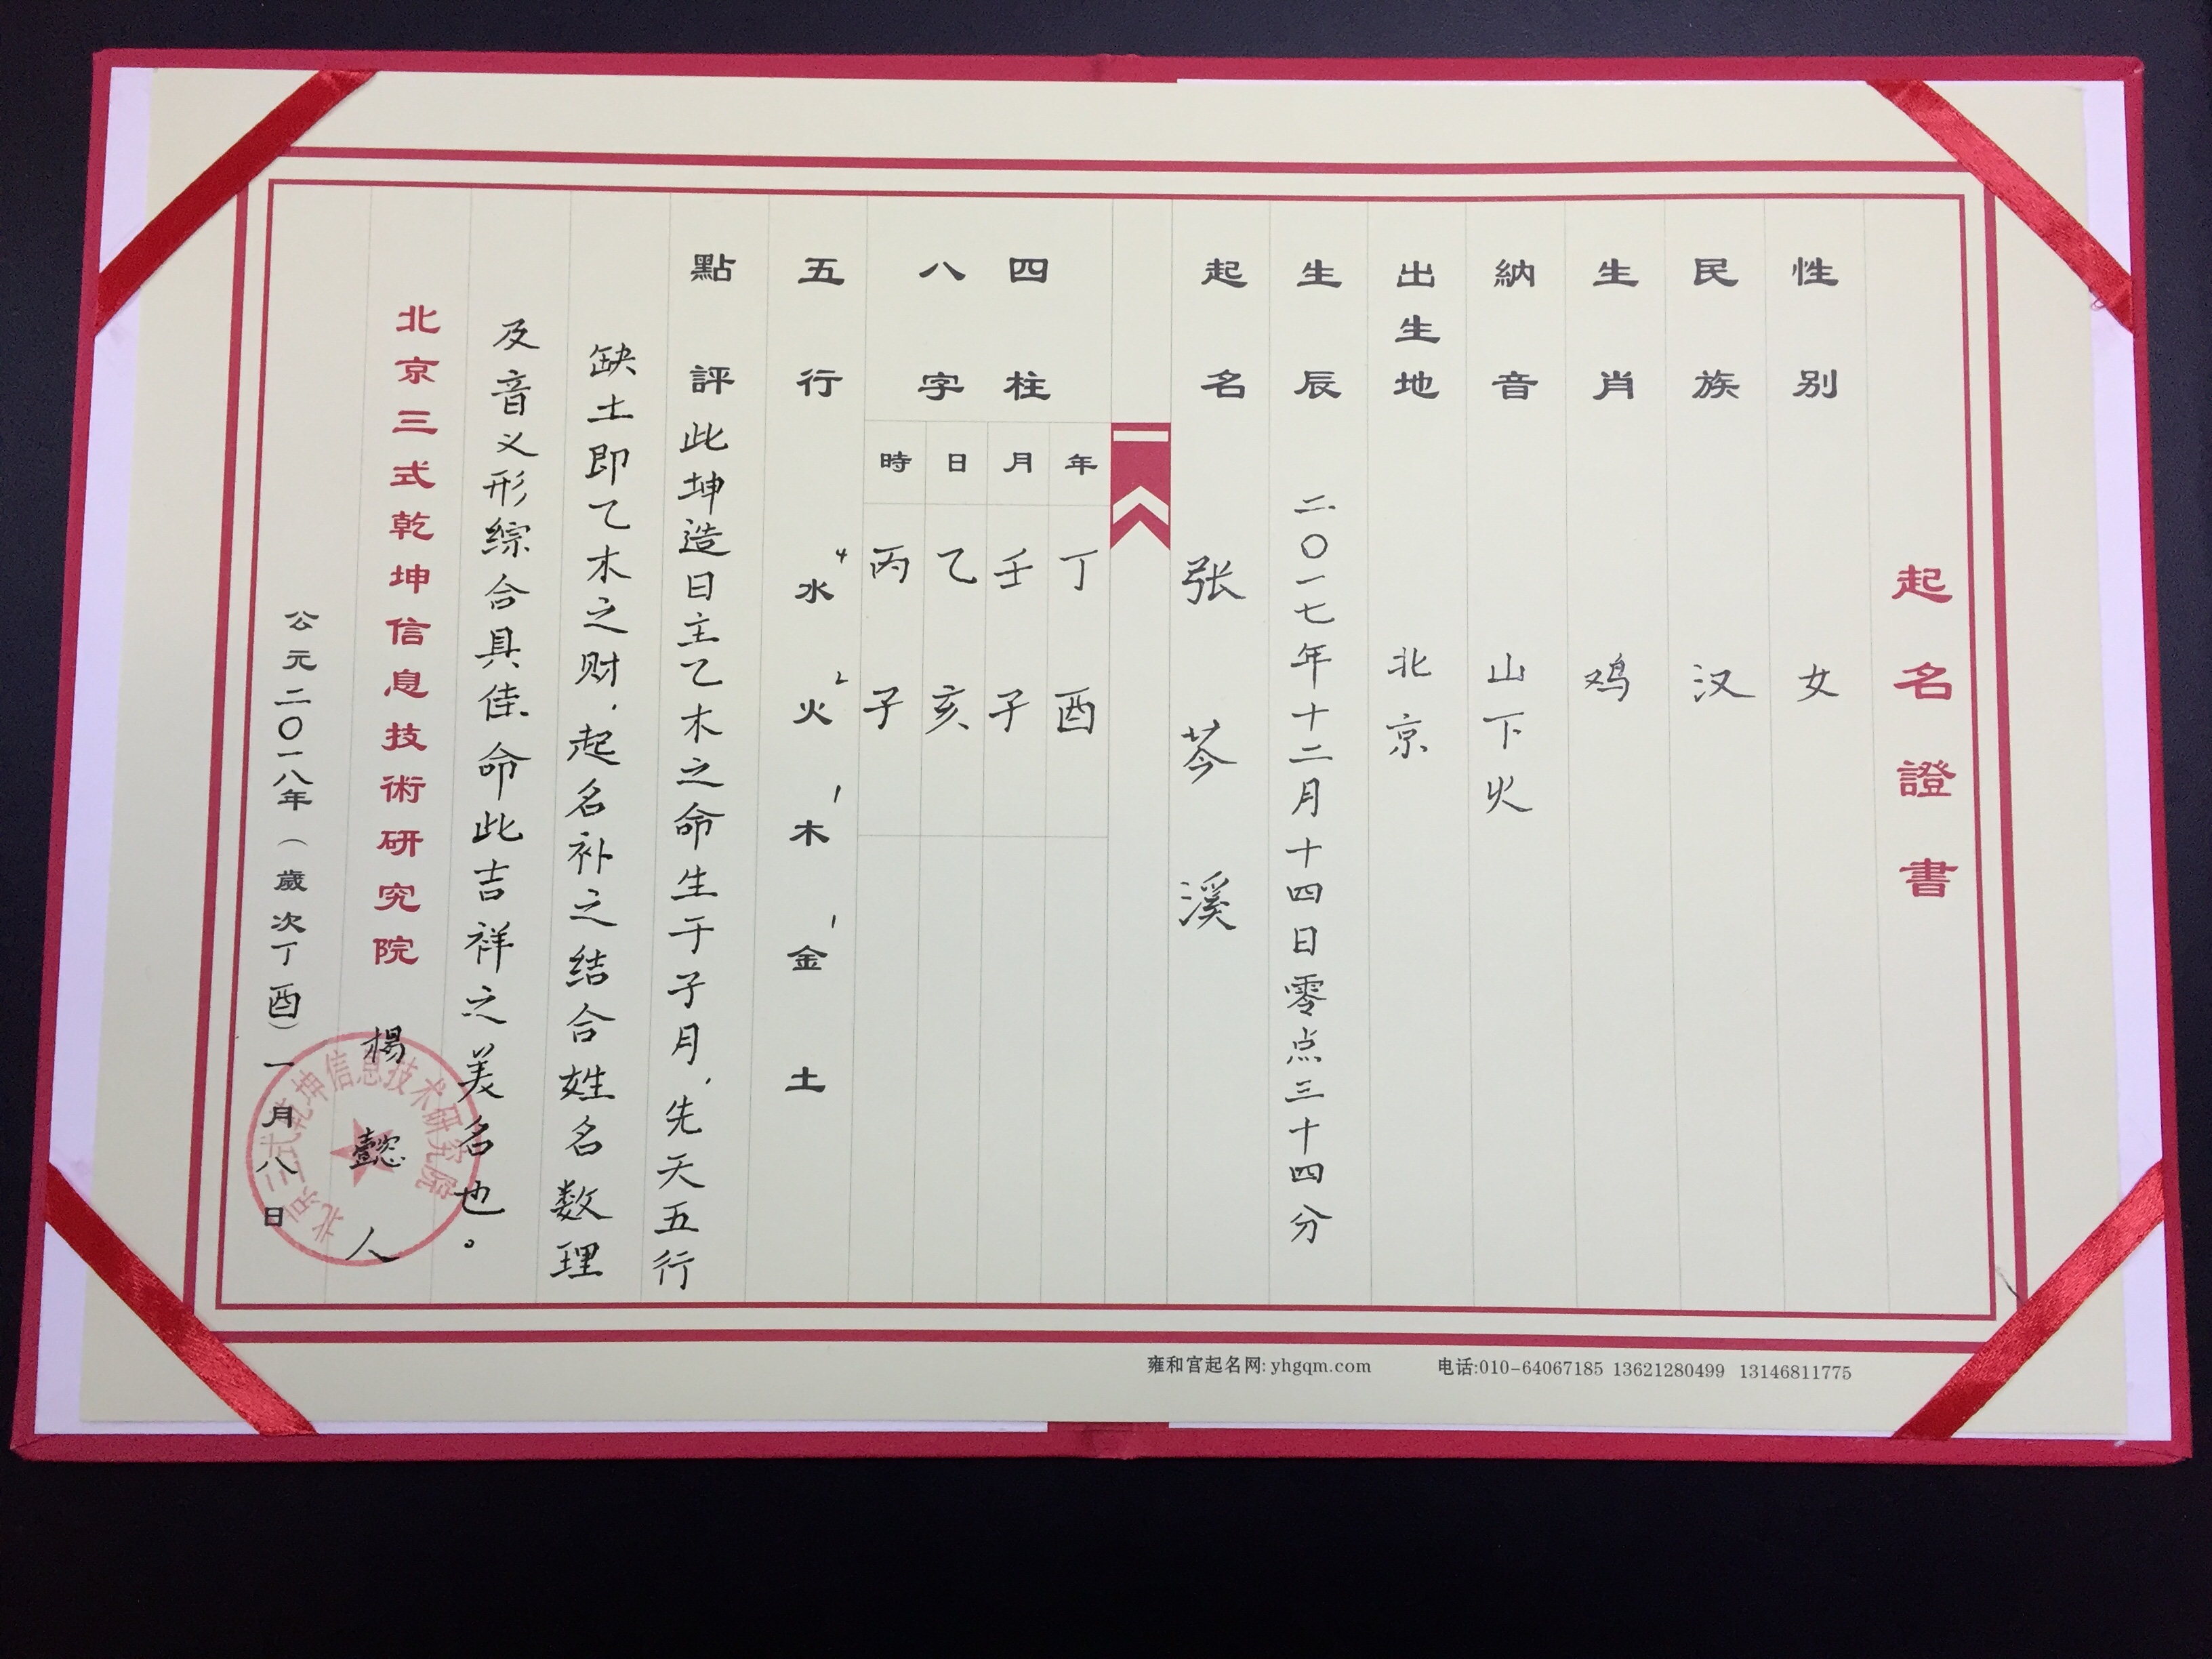 起名證書
性别 女
民族 汉
生肖 鸡
納音 山下火
出生地 北京
生辰 二〇一七年十二月十四日零点三十四分
起名 张芩溪
四柱
八字
年 丁酉
月 壬子
日 乙亥
時 丙子
五行 水4 火2 木1 金1 土
點評 此坤造日主乙木之命生于子月,先天五行
缺土即乙木之财,起名补之结合姓名数理
及音义形综合具佳.命此吉祥之美名也。
北京三式乾坤信息技術研究院 楊懿人
公元二〇一八年(歲次丁酉)一月八日
北京三式乾坤信息技术研究院
雍和宫起名网: yhgqm.com 电话:010-64067185 13621280499 13146811775